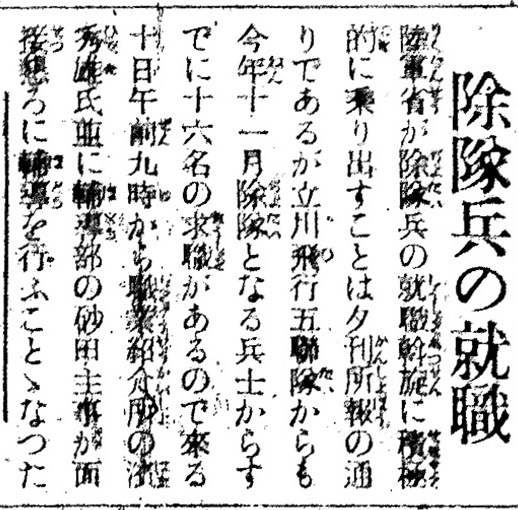 除隊兵の就職
陸軍省が除隊兵の就職斡旋に積極
的に乗り出すことは夕刊所報の通
りであるが立川飛行五聯隊からも
今年十一月除隊となる兵士からす
でに十六名の求職があるので來る
十日午前九時から職業紹介所の濱
秀雄氏並に輔導部の砂田主事が面
接懇ろに輔導を行ふことゝなつた